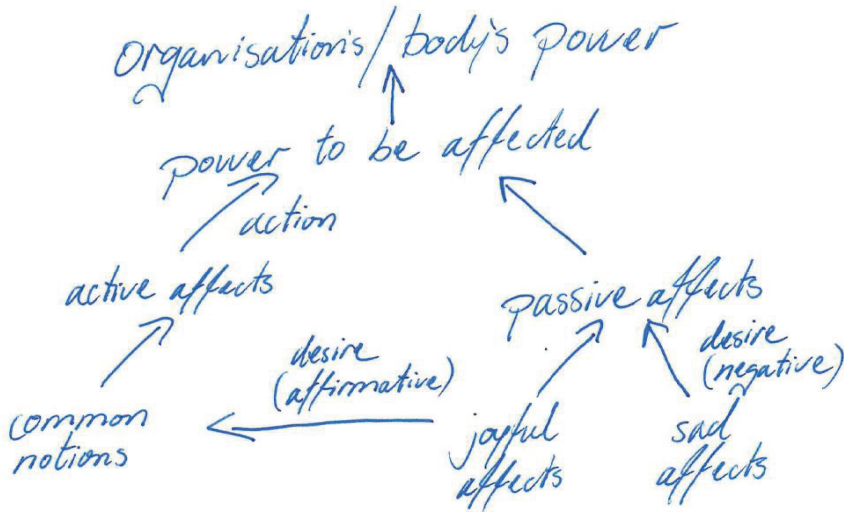 organisation's/body's power
power to be affected
action
active affects
passive affects
desire
(affirmative)
desire
(negative)
common
notions
joyful
affects
sad
affects